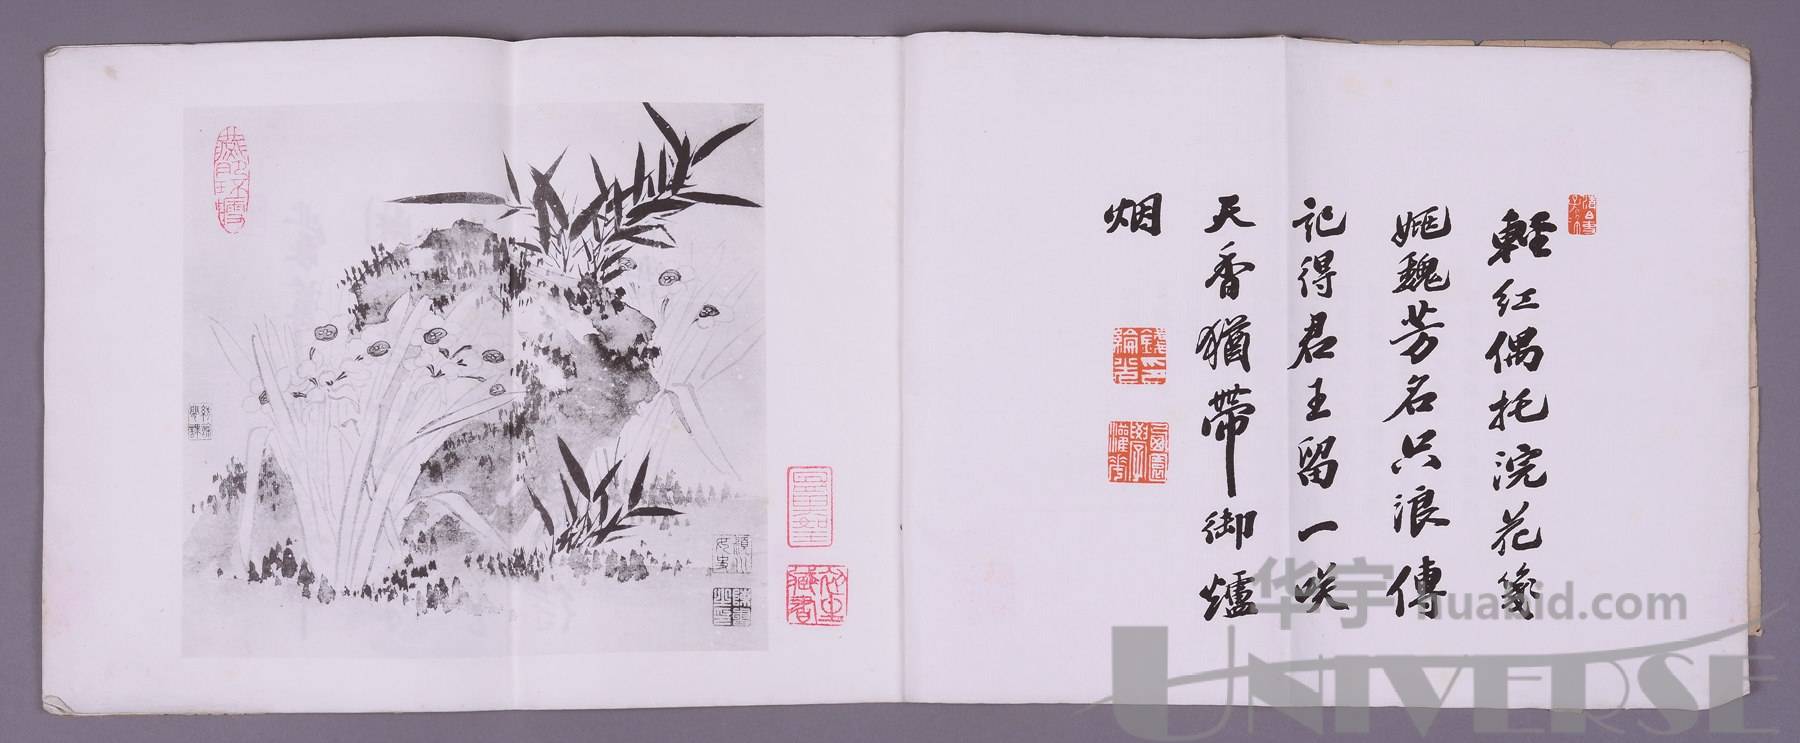 輕紅偶托浣花箋
姚魏芳名只浪傳
記得君王留一咲
天香猶帶御爐
烟
华宇 huabid.com
UNIVERSE